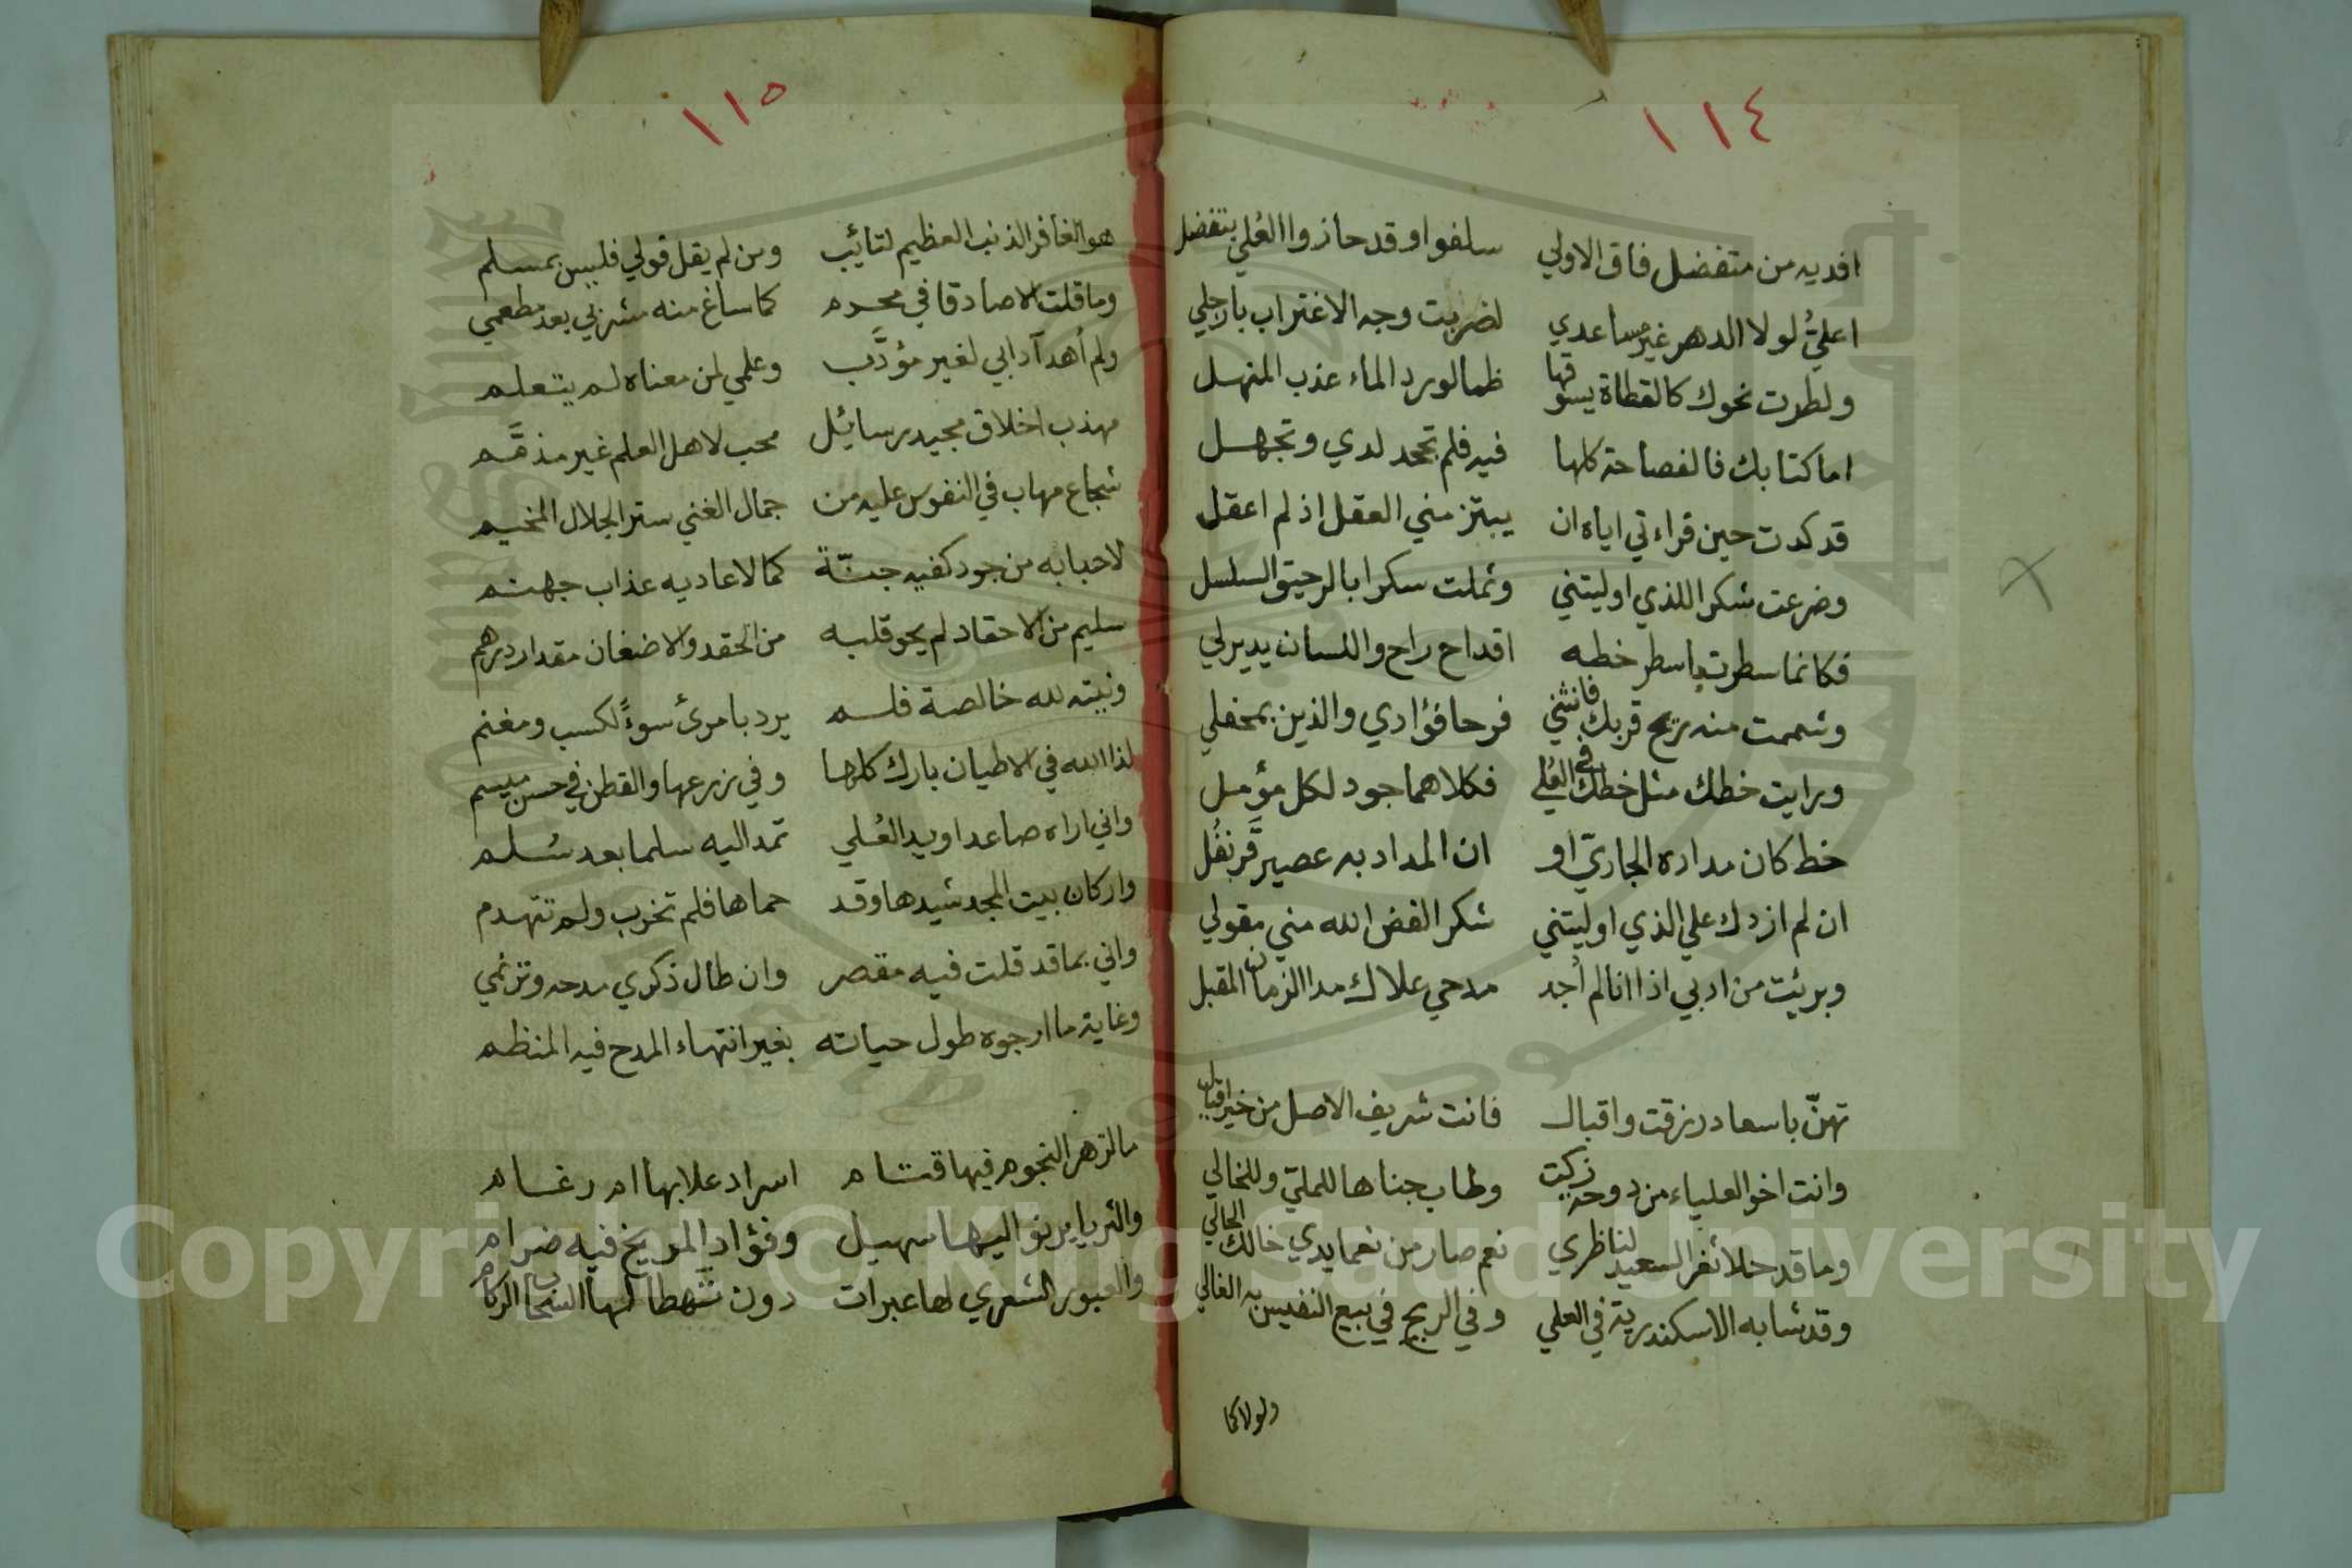 ١١٤
افديه من متفضل فاق الاولي سلفوا وقد حازوا العُلي بتفضل
اعليُّ لولا الدهر غير مساعدي لضربت وجه الاغتراب بارجلي
ولطرت نحوك كالقطاة يسوقها ظمأ لورد الماء عذب المنهل
اما كتابك فالفصاحة كلها فيه فلم تجحد لدي وتجهل
قد كدت حين قراءتي اياه ان يبتز مني العقل اذ لم اعقل
وضرعت شكرا للذي اوليتني وثملت سكرا بالرحيق السلسل
فكانما سطرت باسطر خطه اقداح راح واللسان يدير لي
وشممت منه ريح قربك فانثني فرحا فؤادي والذين بمحفلي
ورايت خطك مثل خطك في العُلي فكلاهما جود لكل مؤمل
خط كان مداده الجاريّ او ان المداد به عصير قَرنفُل
ان لم ازدك علي الذي اوليتني شكرا لفض الله مني مقولي
وبرئت من ادبي اذا انا لم اُجد مدحي علاك مدا الزمان المقبل
تهنّ باسعاد رزقت واقبال فانت شريف الاصل من خير اقيال
وانت اخو العلياء من دوحة زكيت وطاب جناها للملي وللخالي
وما قد حلا ثغر السعيد لناظري نعم صار من نعما يدي خالك الحالي
وقد شابه الاسكندرية في العلي وفي الربح في بيع النفيس به الغالي
ولولا كا
١١٥
هو الغافر الذنب العظيم لتائب ومن لم يقل قولي فليس بمسلم
وما قلت الا صادقا في محرم كما ساغ منه مشربي بعد مطعمي
ولم اُهد آدابي لغير مؤدَّب وعلمي لمن معناه لم يتعلم
مهذب اخلاق مجيد رسائل محب لاهل العلم غير مذمَّم
شجاع مهاب في النفوس عليه من جمال الغني ستر الجلال المخيم
لاحبابه من جود كفيه جنّة كما لاعاديه عذاب جهنم
سليم من الاحقاد لم يحو قلبه من الحقد والاضغان مقدار درهم
ونيته لله خالصة فلم يرد بامرئ سوءً لكسب ومغنم
لذا الله في الاطيان بارك كلها وفي زرعها والقطن في حسن ميسم
واني اراه صاعدا ويد العُلي تمد اليه سلما بعد سُلم
واركان بيت المجد شيدها وقد حماها فلم تخرب ولم تتهدم
واني بما قد قلت فيه مقصر وان طال ذكري مدحه وترنمي
وغاية ما ارجوه طول حياته بغير انتهاء المدح فيه المنظم
ما لزهر النجوم فيها قتام اسراد علا بها ام رغام
والثريا يرنو اليها سهيل وفؤاد المريخ فيه ضرام
والعبور الشعري لها عبرات دون تهطالها السحاب الركام
Copyright © King Saud University